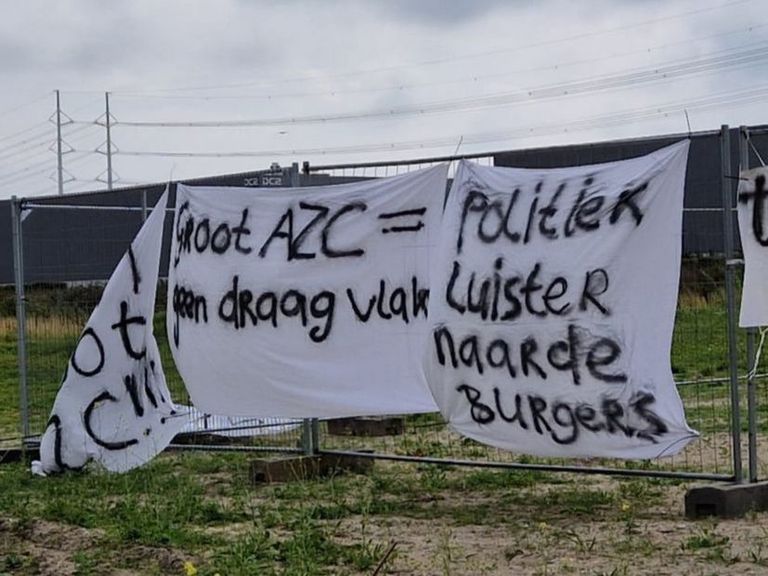 Groot AZC =
geen draagvlak
Politiek
Luister
naar de
Burgers
DC2 DC2